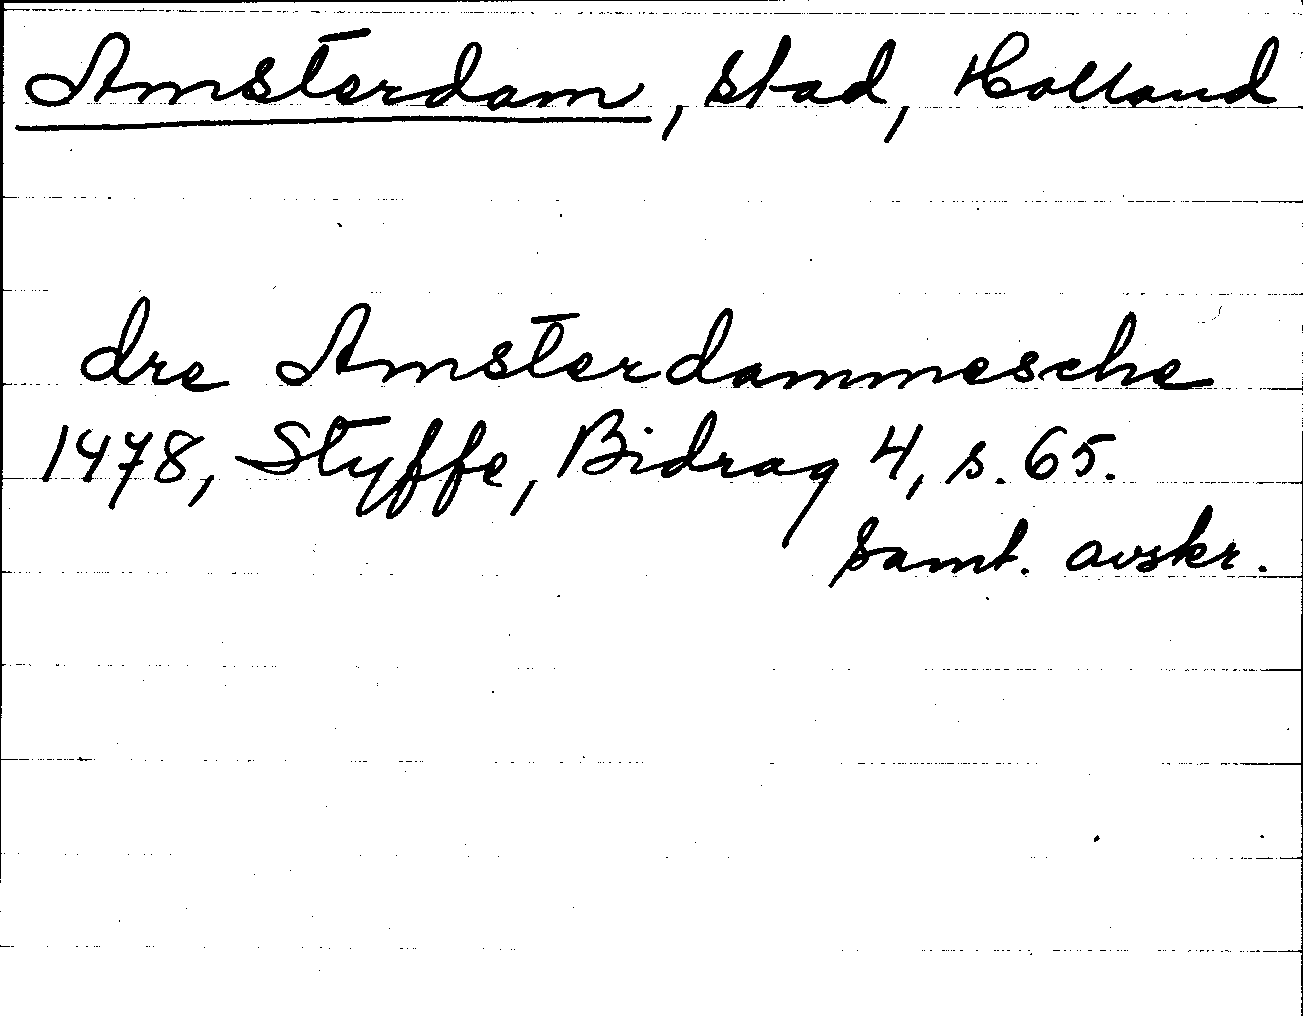 Amsterdam, stad, Holland
dre Amsterdammesche
1478, Styffe, Bidrag 4, s. 65.
samt. avskr.